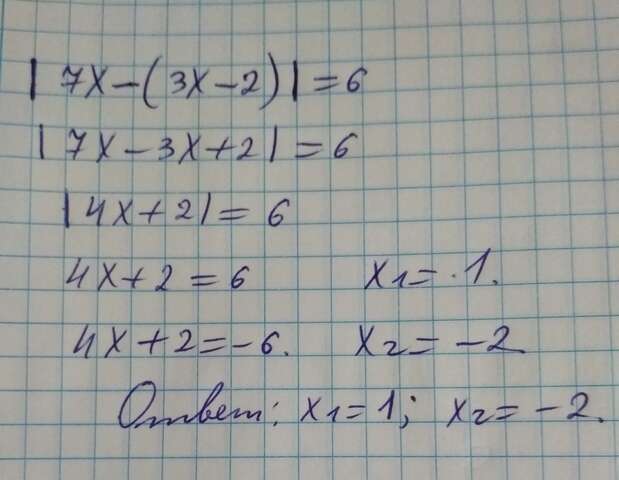 | 7x-(3x-2)|=6
| 7x-3x+2|=6
|4x+2|=6
4x+2=6 x₁=1.
4x+2=-6. x₂=-2
Ответ: x₁=1; x₂=-2.